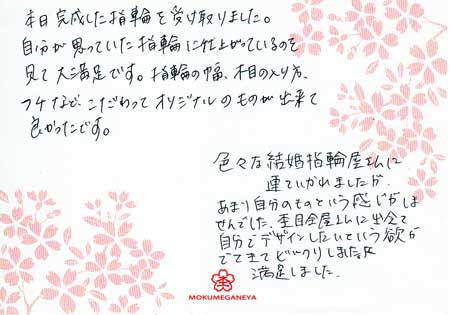 本日完成した指輪を受け取りました。
自分が思っていた指輪に仕上がっているのを
見て大満足です。指輪の幅、木目の入り方、
ツヤなど、こだわってオリジナルのものが出来て
良かったです。
色々な結婚指輪屋さんに
連ていかれましたが、
あまり自分のものという感じがしま
せんでした。杢目金屋さんに出会って
自分でデザインしたいという欲が
でてきてビックリしましたが
満足しました。
杢
MOKUMEGANEYA